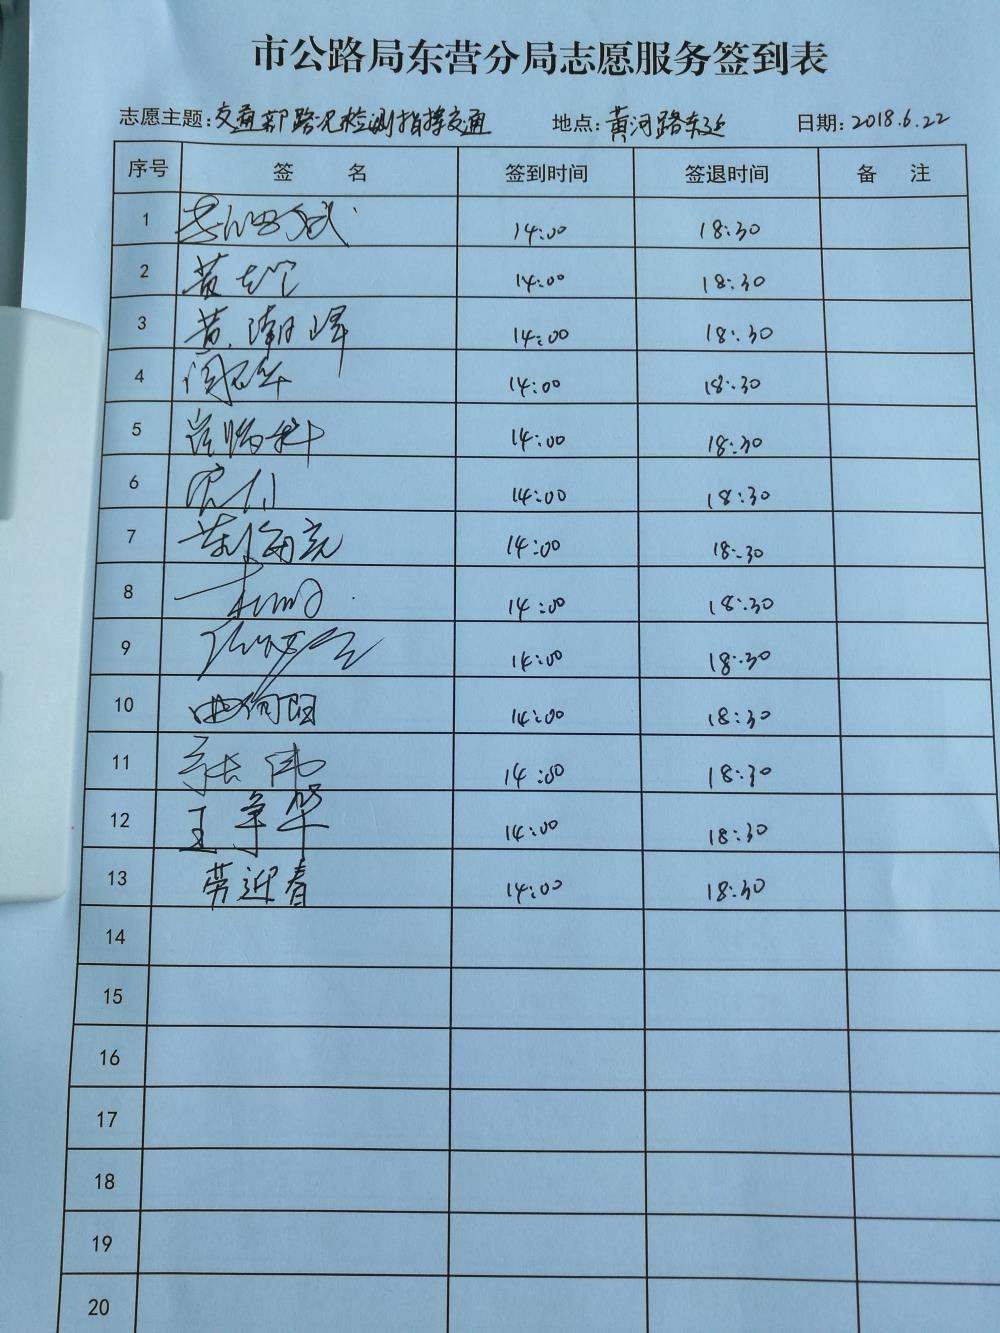 市公路局东营分局志愿服务签到表
志愿主题:交通部路况检测指挥交通 地点:黄河路东延 日期:2018.6.22
序号 签 名 签到时间 签退时间 备 注
1 14:00 18:30
2 黄 14:00 18:30
3 黄潮峰 14:00 18:30
4 14:00 18:30
5 14:00 18:30
6 14:00 18:30
7 14:00 18:30
8 14:00 18:30
9 14:00 18:30
10 曲向阳 14:00 18:30
11 张伟 14:00 18:30
12 王争华 14:00 18:30
13 劳迎春 14:00 18:30
14
15
16
17
18
19
20